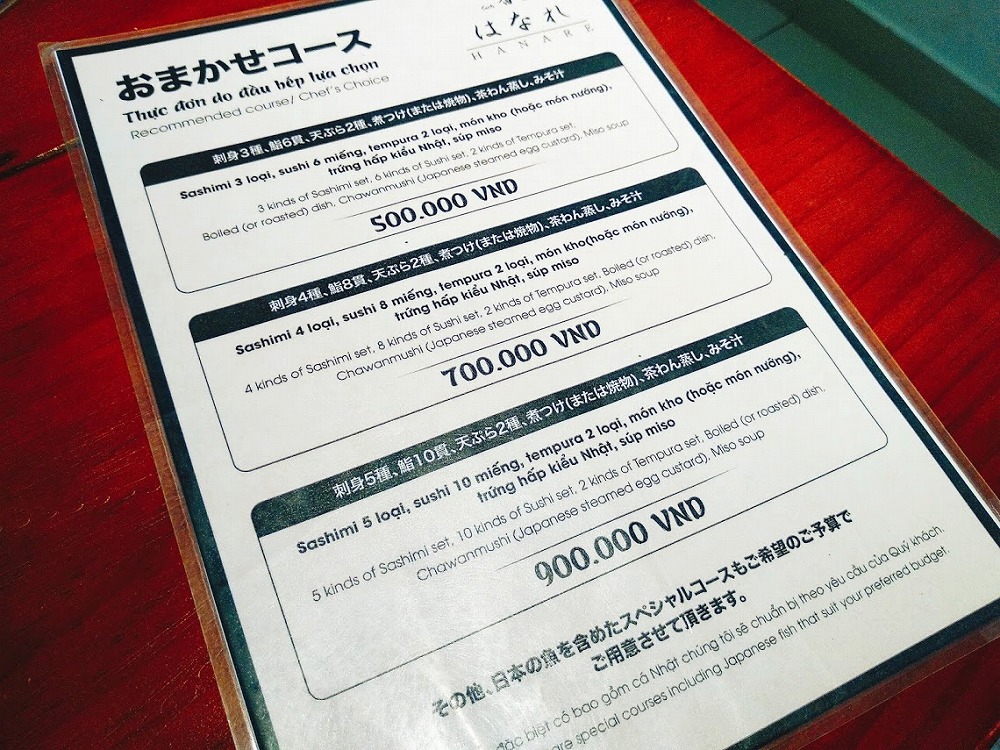 はなれ
HANARE
おまかせコース
Thực đơn do đầu bếp lựa chọn
Recommended course/ Chef's Choice
刺身3種、鮨6貫、天ぷら2種、煮つけ(または焼物)、茶わん蒸し、みそ汁
Sashimi 3 loại, sushi 6 miếng, tempura 2 loại, món kho (hoặc món nướng),
trứng hấp kiểu Nhật, súp miso
3 kinds of Sashimi set, 6 kinds of Sushi set, 2 kinds of Tempura set,
Boiled (or roasted) dish, Chawanmushi (Japanese steamed egg custard), Miso soup
500.000 VND
刺身4種、鮨8貫、天ぷら2種、煮つけ(または焼物)、茶わん蒸し、みそ汁
Sashimi 4 loại, sushi 8 miếng, tempura 2 loại, món kho(hoặc món nướng),
trứng hấp kiểu Nhật, súp miso
4 kinds of Sashimi set, 8 kinds of Sushi set, 2 kinds of Tempura set, Boiled (or roasted) dish,
Chawanmushi (Japanese steamed egg custard), Miso soup
700.000 VND
刺身5種、鮨10貫、天ぷら2種、煮つけ(または焼物)、茶わん蒸し、みそ汁
Sashimi 5 loại, sushi 10 miếng, tempura 2 loại, món kho (hoặc món nướng),
trứng hấp kiểu Nhật, súp miso
5 kinds of Sashimi set, 10 kinds of Sushi set, 2 kinds of Tempura set, Boiled (or roasted) dish,
Chawanmushi (Japanese steamed egg custard), Miso soup
900.000 VND
その他、日本の魚を含めたスペシャルコースもご希望のご予算で
ご用意させて頂きます。
đặc biệt có bao gồm cá Nhật chúng tôi sẽ chuẩn bị theo yêu cầu của Quý khách.
special courses including Japanese fish that suit your preferred budget.